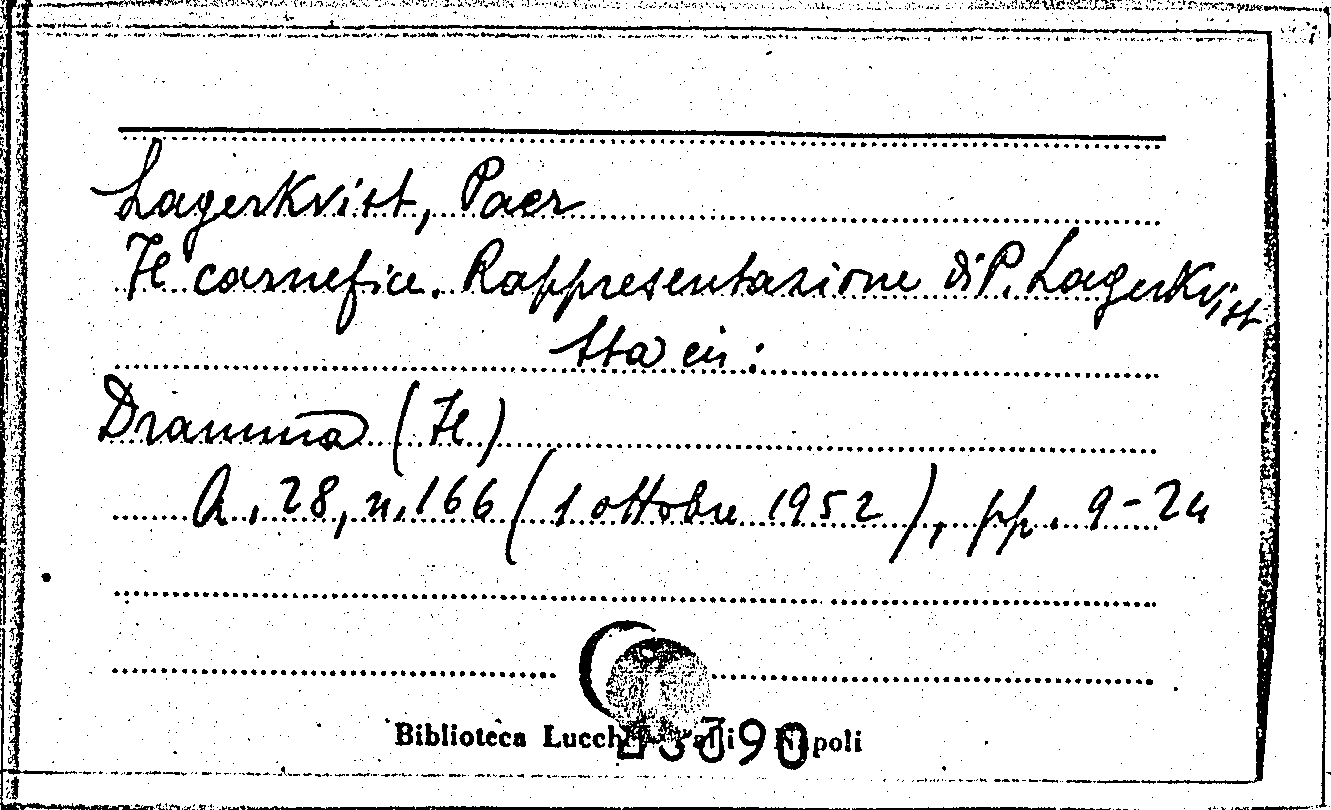 Lagerkvist, Paer
Il carnefice. Rappresentazione di P. Lagerkvist
Sta in:
Dramma (Il)
A. 28, n. 166 (1 ottobre 1952), pp. 9-24
Biblioteca Napoli